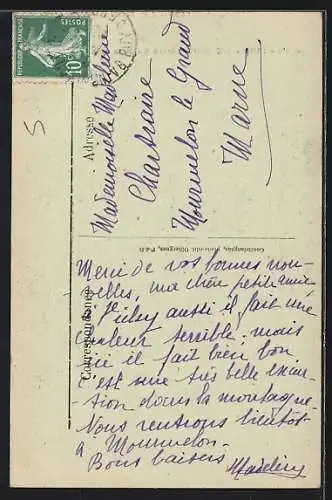 5
RÉPUBLIQUE FRANÇAISE
POSTES
10
Adresse
Mademoiselle Madeleine
Chartraire
Mourmelon le Grand
Marne
Correspondance
Merci de vos bonnes nou-
velles, ma chère petite amie
aussi il fait une
chaleur terrible, mais
ici il fait bien bon
c'est une très belle excur-
sion dans la montagne.
Nous rentrons bientôt
à Mourmelon.
Bons baisers